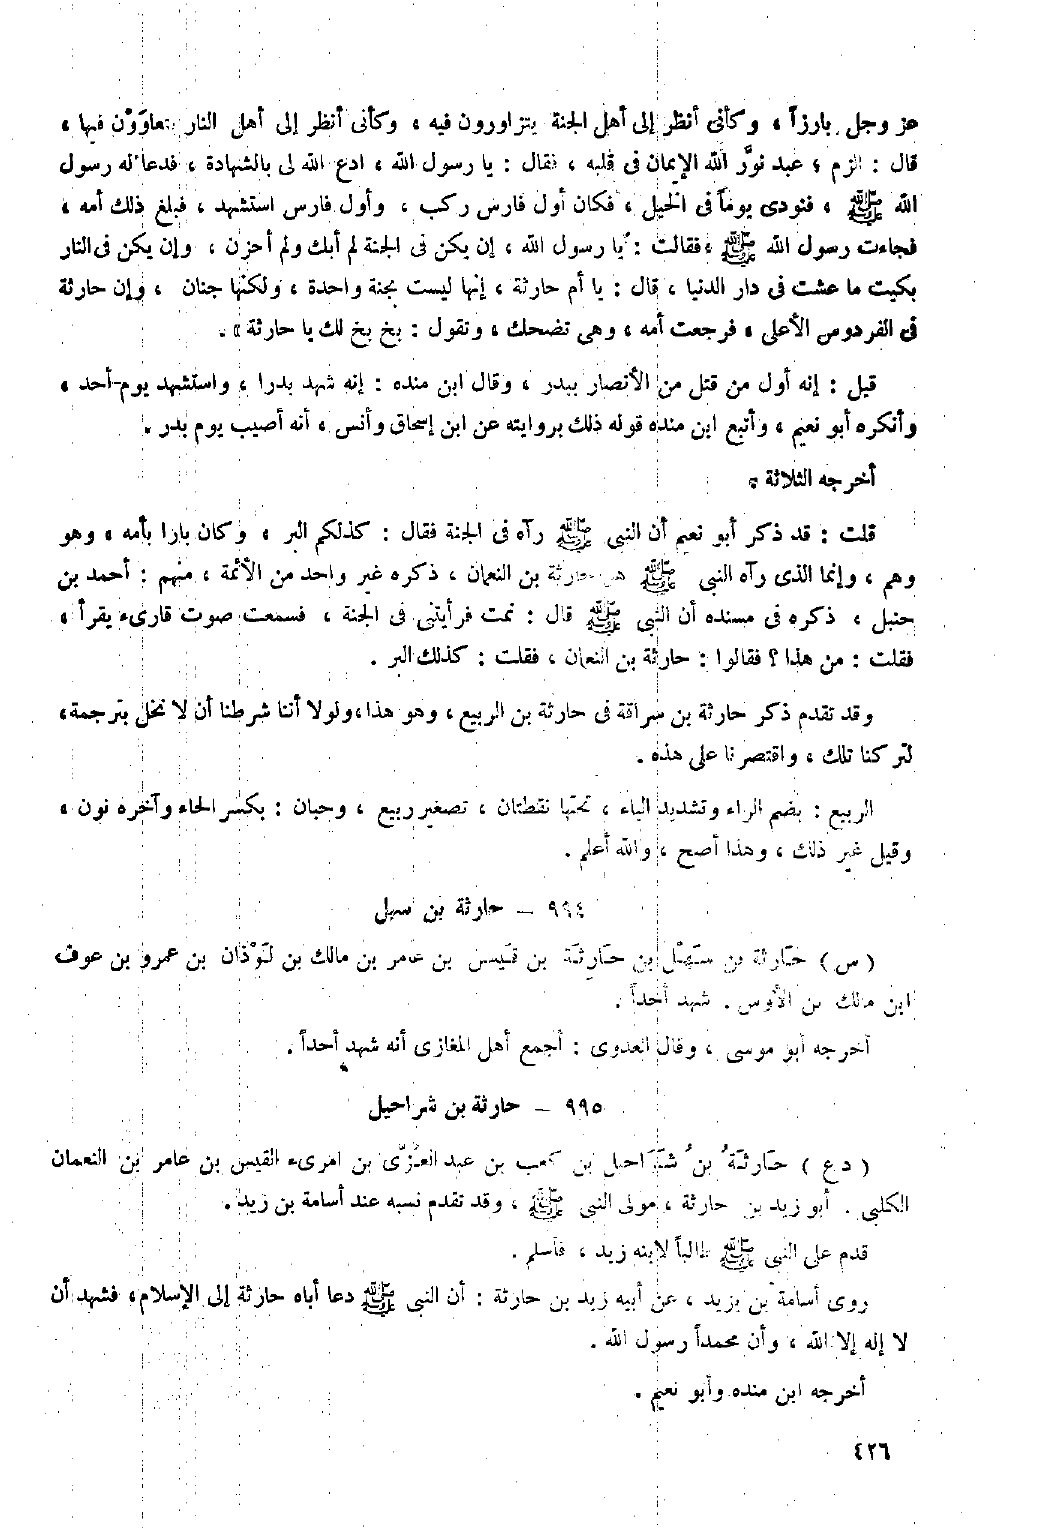 عز وجل بارزاً ، وكأنى أنظر إلى أهل الجنة يتزاورون فيه ، وكأنى أنظر إلى أهل النار يتعاوَوْن فيها ،
قال : الزم ؛ عبد نوَّر الله الإيمان فى قلبه ، فقال : يا رسول الله ، ادع الله لى بالشهادة ، فدعا له رسول
الله ﷺ ، فنودى يوماً فى الخيل ، فكان أول فارس ركب ، وأول فارس استشهد ، فبلغ ذلك أمه ،
فجاءت رسول الله ﷺ ، فقالت : يا رسول الله ، إن يكن فى الجنة لم أبك ولم أحزن ، وإن يكن فى النار
بكيت ما عشت فى دار الدنيا ، قال : يا أم حارثة ، إنها ليست بجنة واحدة ، ولكنها جنان ، وإن حارثة
فى الفردوس الأعلى ، فرجعت أمه ، وهى تضحك ، وتقول : بخ بخ لك يا حارثة » .
قيل : إنه أول من قتل من الأنصار ببدر ، وقال ابن منده : إنه شهد بدرا ، واستشهد يوم أحد ،
وأنكره أبو نعيم ، وأتبع ابن منده قوله ذلك بروايته عن ابن إسحاق وأنس ، أنه أصيب يوم بدر .
أخرجه الثلاثة :
قلت : قد ذكر أبو نعيم أن النبى ﷺ رآه فى الجنة فقال : كذلكم البر ، وكان بارا بأمه ، وهو
وهم ، وإنما الذى رآه النبى ﷺ هو حارثة بن النعمان ، ذكره غير واحد من الأئمة ، منهم : أحمد بن
حنبل ، ذكره فى مسنده أن النبى ﷺ قال : نمت فرأيتنى فى الجنة ، فسمعت صوت قارىء يقرأ ،
فقلت : من هذا ؟ فقالوا : حارثة بن النعمان ، فقلت : كذلك البر .
وقد تقدم ذكر حارثة بن سراقة فى حارثة بن الربيع ، وهو هذا ، ولولا أننا شرطنا أن لا نخل بترجمة ،
لتركنا تلك ، واقتصرنا على هذه .
الربيع : بضم الراء وتشديد الياء ، تحتها نقطتان ، تصغير ربيع ، وحبان : بكسر الحاء وآخره نون ،
وقيل غير ذلك ، وهذا أصح ، والله أعلم .
٩٩٤ – حارثة بن سهل
( س ) حَارثة بن سَهْل بن حَارِثَة بن قَيس بن عامر بن مالك بن لَوْذان بن عمرو بن عوف
ابن مالك بن الأوس . شهد أحداً .
أخرجه أبو موسى ، وقال العدوى : أجمع أهل المغازى أنه شهد أحداً .
٩٩٥ – حارثة بن شراحيل
( د ع ) حَارثَةُ بنُ شَرَاحيل بن كعب بن عبد العُزَّى بن امرىء القيس بن عامر بن النعمان
الكلبى . أبو زيد بن حارثة ، مولى النبى ﷺ ، وقد تقدم نسبه عند أسامة بن زيد .
قدم على النبى ﷺ طالباً لابنه زيد ، فأسلم .
روى أسامة بن زيد ، عن أبيه زيد بن حارثة : أن النبى ﷺ دعا أباه حارثة إلى الإسلام ، فشهد أن
لا إله إلا الله ، وأن محمداً رسول الله .
أخرجه ابن منده وأبو نعيم .
٤٢٦